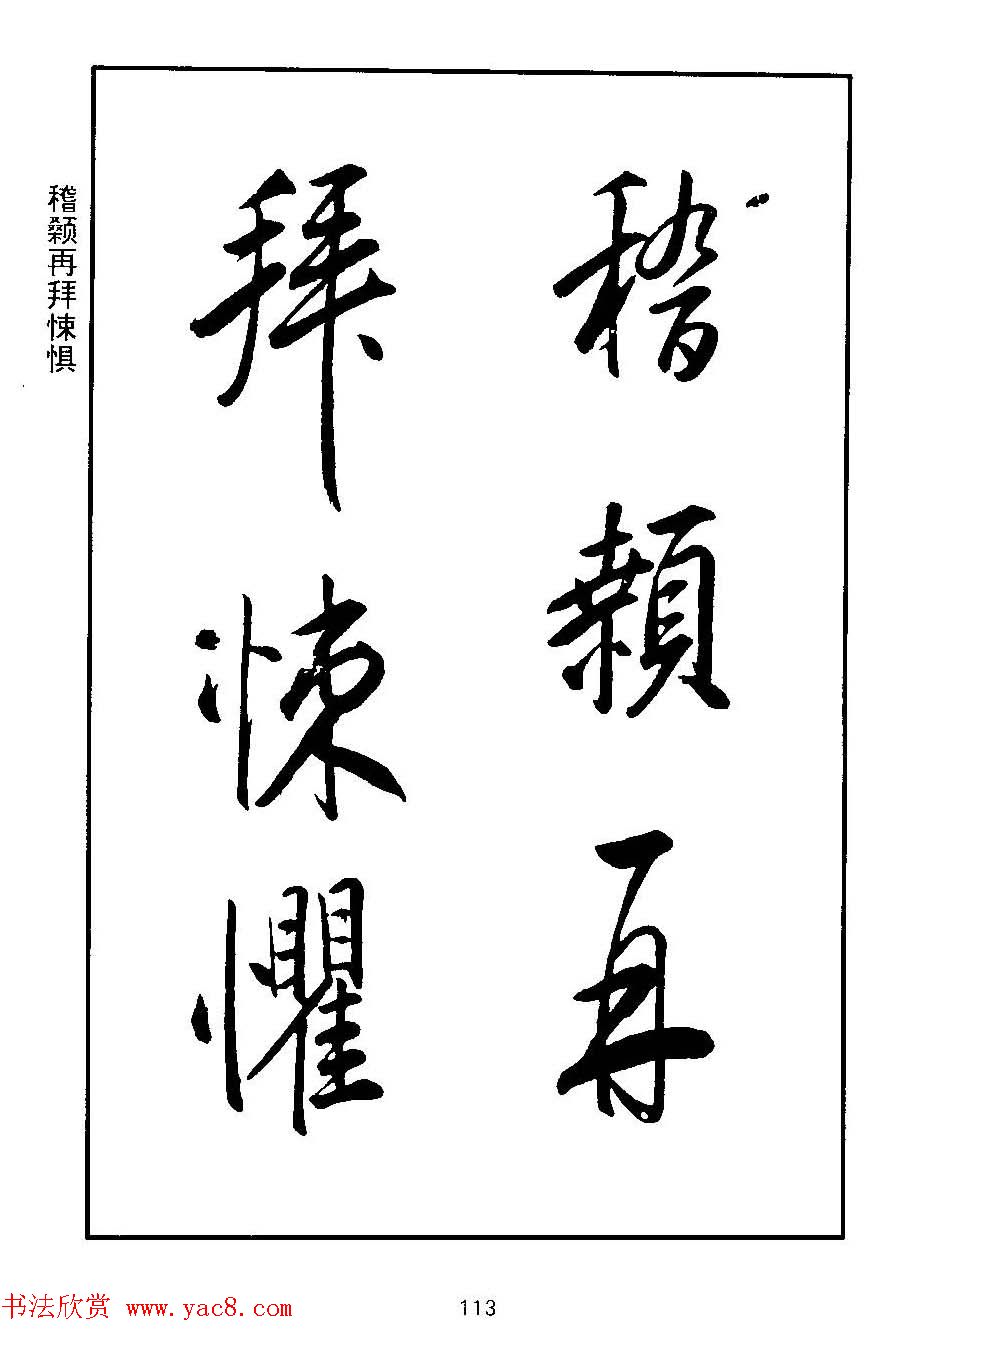 稽顙再
拜悚懼
稽颡再拜悚惧
书法欣赏 www.yac8.com
113